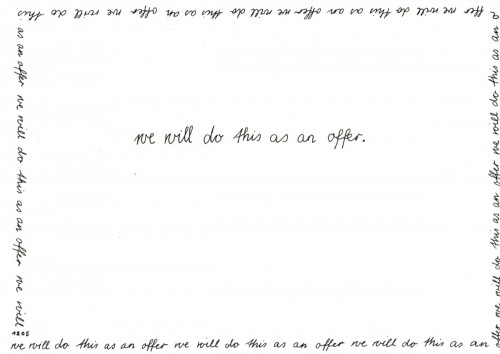 ffer we will do this as an offer we will do this as an offer we will do this.
as an offer we will do this as an offer we will
we will do this as an offer.
offer we will do this as an offer we will do this as an o
1805
we will do this as an offer we will do this as an offer we will do this as an